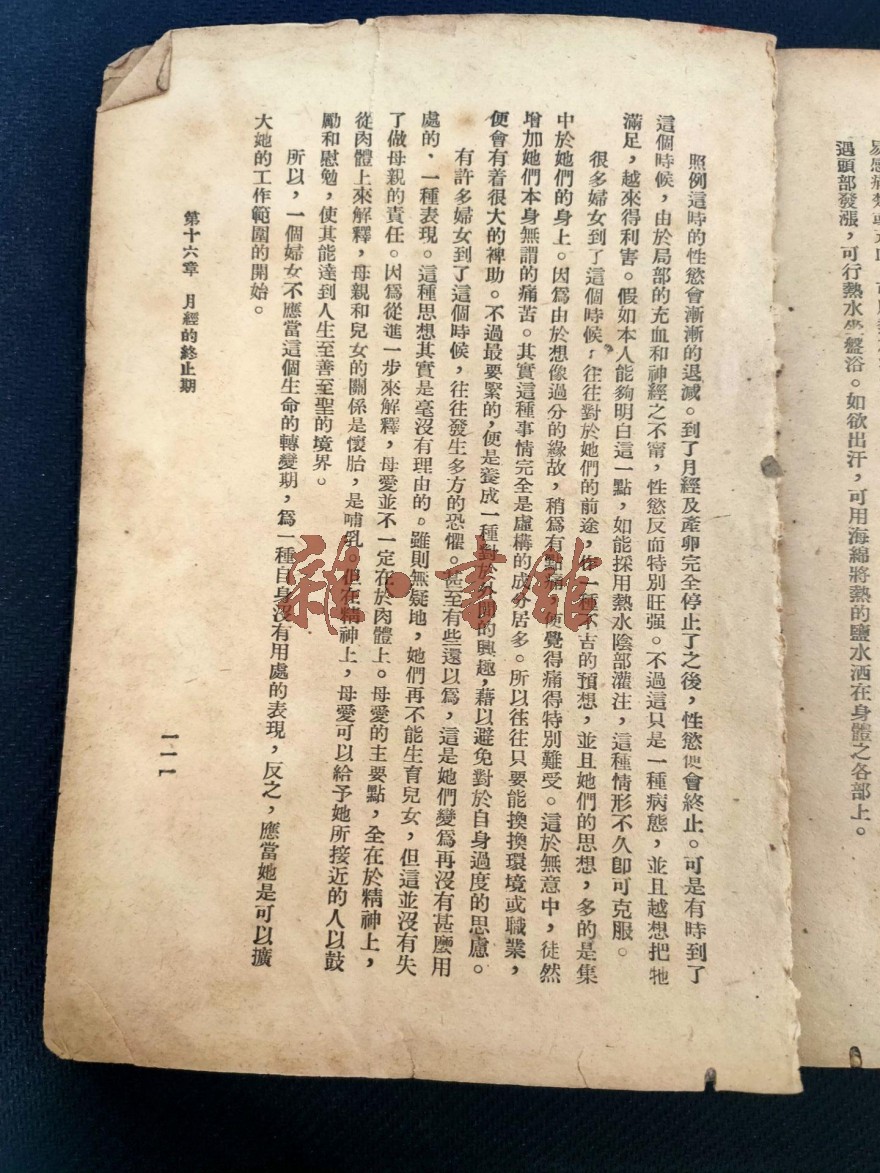 遇頭部發漲，可行熱水坐盤浴。如欲出汗，可用海綿將熱的鹽水洒在身體之各部上。
照例這時的性慾會漸漸的退減。到了月經及產卵完全停止了之後，性慾便會終止。可是有時到了
這個時候，由於局部的充血和神經之不甯，性慾反而特別旺强。不過這只是一種病態，並且越想把牠
滿足，越來得利害。假如本人能夠明白這一點，如能採用熱水陰部灌注，這種情形不久卽可克服。
很多婦女到了這個時候，往往對於她們的前途，作一種不吉的預想，並且她們的思想，多的是集
中於她們的身上。因爲由於想像過分的緣故，稍爲有點痛，便覺得痛得特別難受。這於無意中，徒然
增加她們本身無謂的痛苦。其實這種事情完全是虛構的成分居多。所以往往只要能換換環境或職業，
便會有着很大的裨助。不過最要緊的，便是養成一種對於外間的興趣，藉以避免對於自身過度的思慮。
有許多婦女到了這個時候，往往發生多方的恐懼。甚至有些還以爲，這是她們變爲再沒有甚麼用
處的，一種表現。這種思想其實是毫沒有理由的。雖則無疑地，她們再不能生育兒女，但這並沒有失
了做母親的責任。因爲從進一步來解釋，母愛並不一定在於肉體上。母愛的主要點，全在於精神上，
從肉體上來解釋，母親和兒女的關係是懷胎，是哺乳。但在精神上，母愛可以給予她所接近的人以鼓
勵和慰勉，使其能達到人生至善至聖的境界。
所以，一個婦女不應當這個生命的轉變期，爲一種自身沒有用處的表現，反之，應當她是可以擴
大她的工作範圍的開始。
第十六章 月經的終止期
一二一
雜·書館